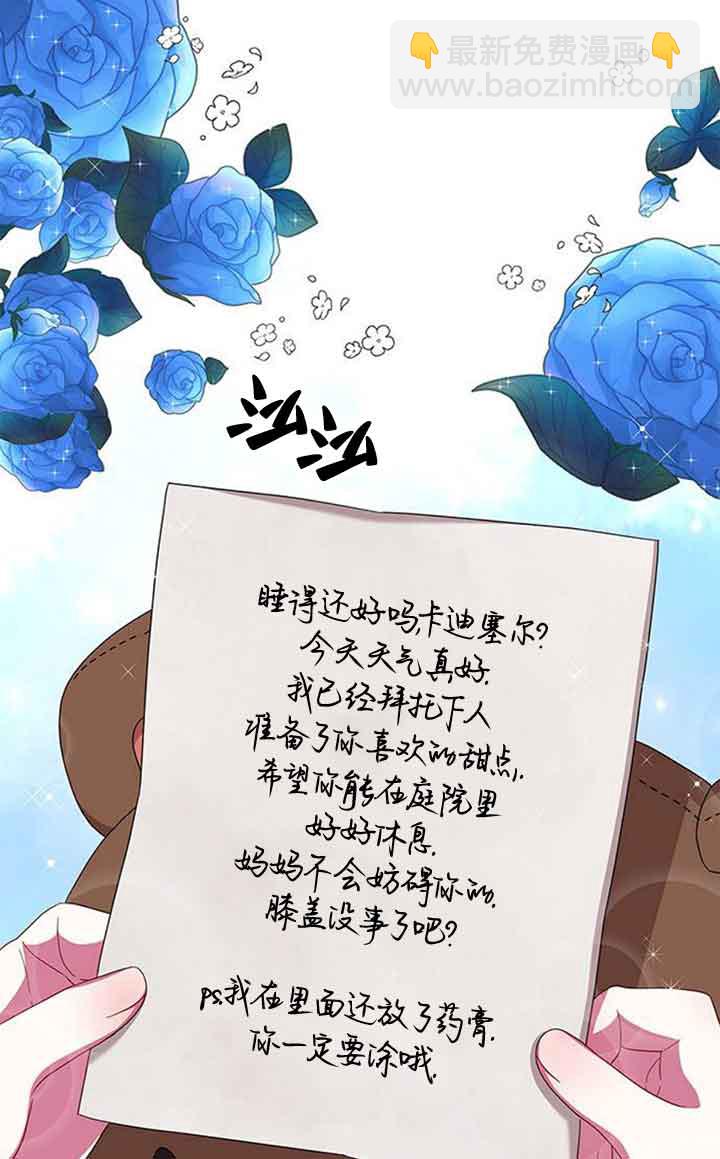 👇最新免费漫画👇
www.baozimh.com
泓泓
睡得还好吗,卡迪塞尔?
今天天气真好.
我已经拜托下人
准备了你喜欢的甜点,
希望你能在庭院里
好好休息.
妈妈不会妨碍你的.
膝盖没事了吧?
ps我在里面还放了药膏.
你一定要涂哦.